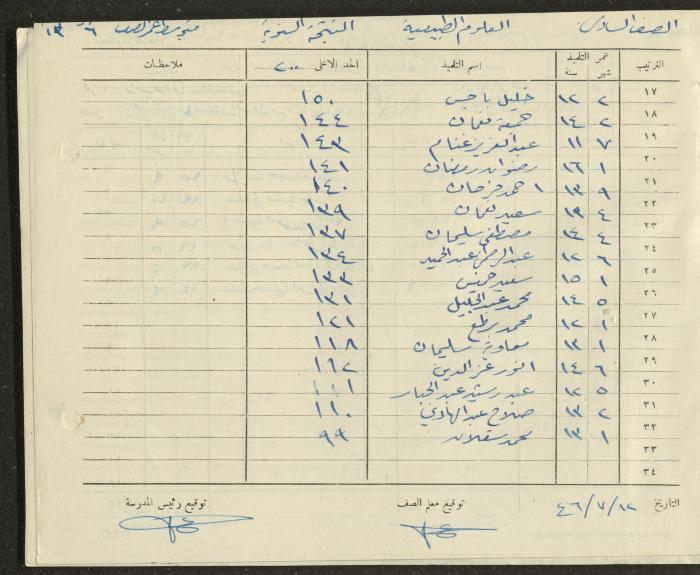 الصف السادس العلوم الطبيعية النتيجة السنوية متوسط عمر الصف ٦ ١٣
الترتيب عمر التلميذ شهر سنة إسم التلميذ الحد الاعلى ٢٠٠ ملاحظات
١٧ ٢ ١٢ خليل باجس ١٥٠
١٨ ٢ ١٤ جمعة نعمان ١٤٤
١٩ ٧ ١١ عبد العزيز غنام ١٤٣
٢٠ ١ ١٦ رضوان رمضان ١٤١
٢١ ٩ ١٣ احمد فرحان ١٤٠
٢٢ ٤ ١٣ سعيد نعمان ١٣٩
٢٣ ٤ ١٤ مصطفى سليمان ١٣٧
٢٤ ٦ ١٢ عبد الرحمن عبد الحميد ١٣٤
٢٥ ١ ١٥ سعيد خميس ١٣٣
٢٦ ٥ ١٤ محمد عبد الجليل ١٣١
٢٧ ١ ١٢ محمد ١٢١
٢٨ ١ ١٣ معاوية سليمان ١١٨
٢٩ ٦ ١٤ انور عز الدين ١١٢
٣٠ ٥ ١٢ عبد رشيد عبد الجبار ١١١
٣١ ٢ ١٣ صلاح عبد الهادي ١١٠
٣٢ ١ ١٣ محمد ٩٩
٣٣
٣٤
التاريخ ٤٦/٧/١٢ توقيع معلم الصف توقيع رئيس المدرسة